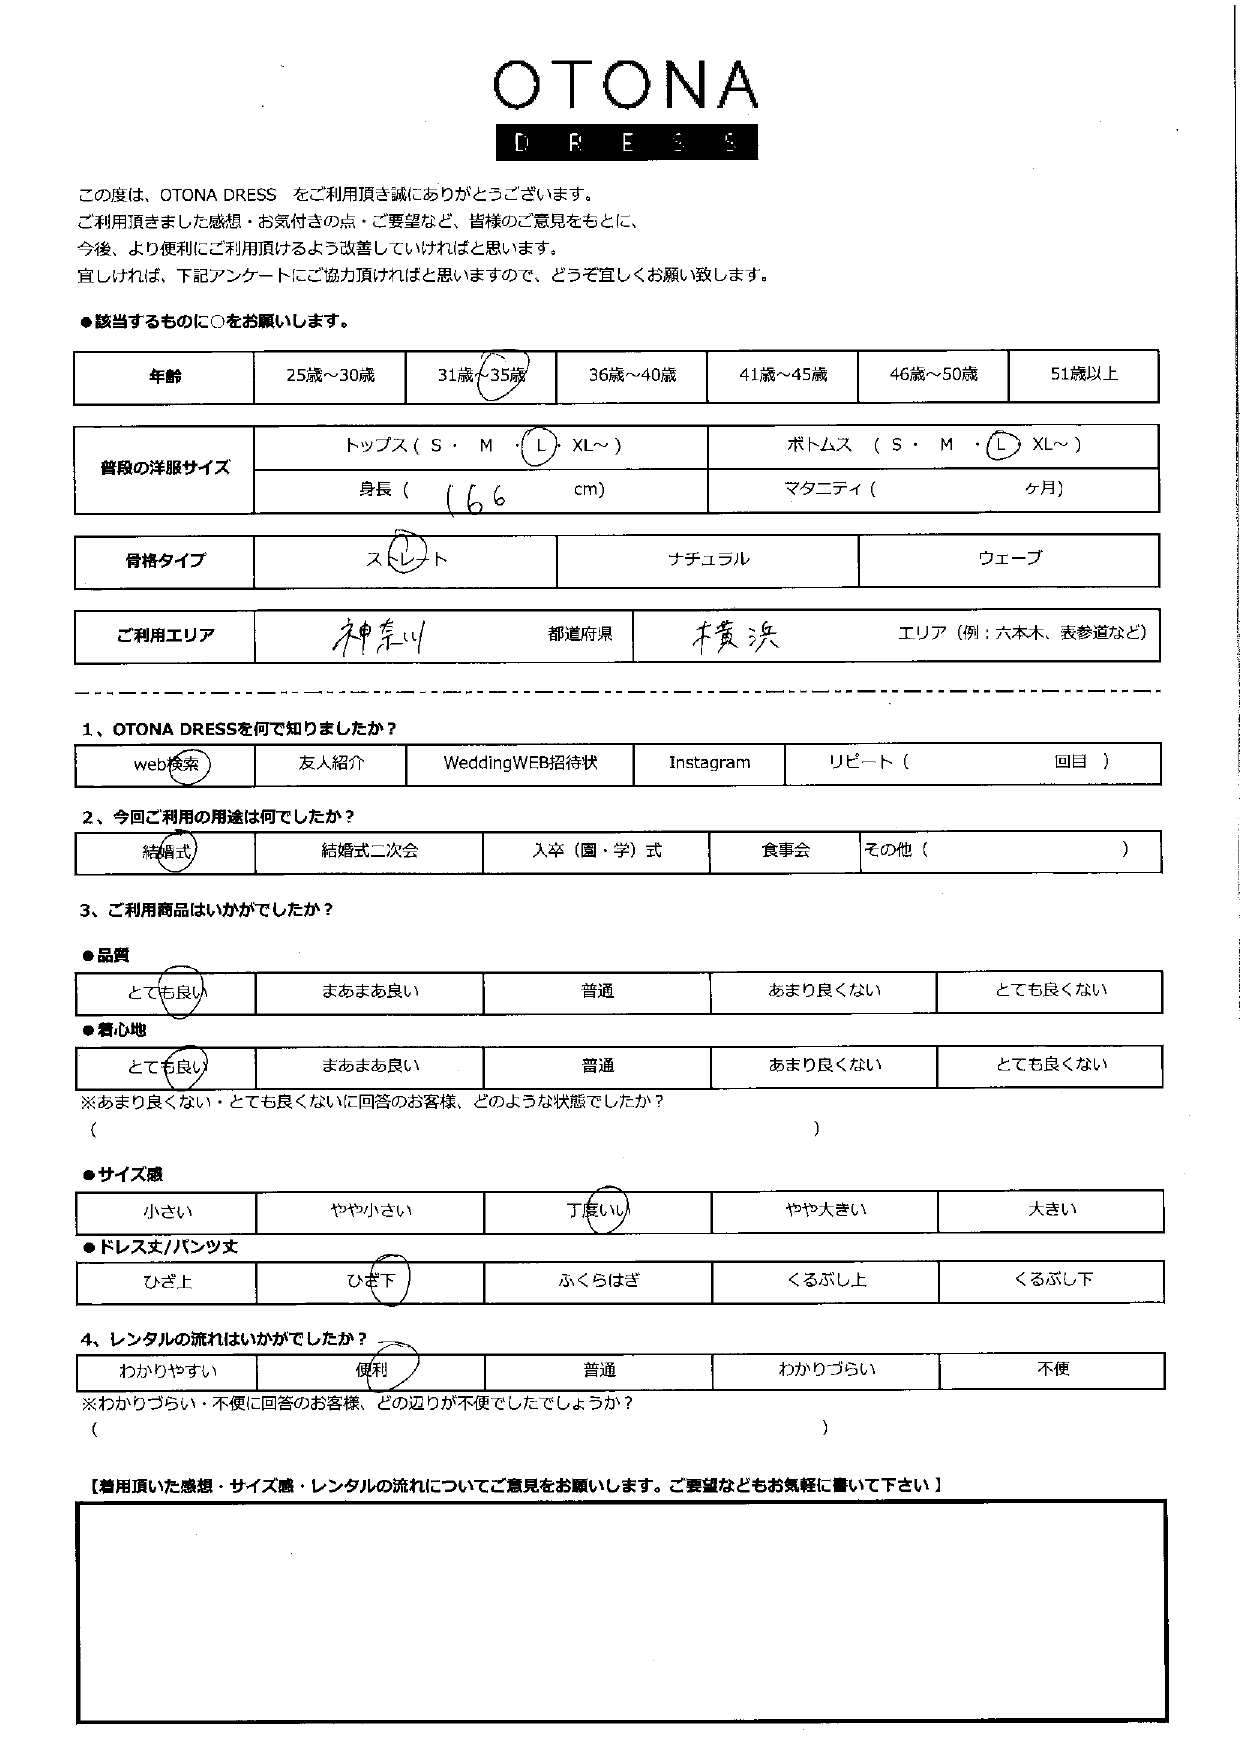 OTONA
DRESS
この度は、OTONA DRESS　をご利用頂き誠にありがとうございます。
ご利用頂きました感想・お気付きの点・ご要望など、皆様のご意見をもとに、
今後、より便利にご利用頂けるよう改善していければと思います。
宜しければ、下記アンケートにご協力頂ければと思いますので、どうぞ宜しくお願い致します。
●該当するものに○をお願いします。
年齢 25歳～30歳 31歳～35歳 36歳～40歳 41歳～45歳 46歳～50歳 51歳以上
普段の洋服サイズ トップス ( S ・ M ・ L ・ XL～ ) ボトムス ( S ・ M ・ L XL～ )
身長 ( 166 cm) マタニティ ( ヶ月)
骨格タイプ ストレート ナチュラル ウェーブ
ご利用エリア 神奈川 都道府県 横浜 エリア（例：六本木、表参道など）
1、OTONA DRESSを何で知りましたか？
web検索 友人紹介 WeddingWEB招待状 Instagram リピート（ 回目 ）
2、今回ご利用の用途は何でしたか？
結婚式 結婚式二次会 入卒（園・学）式 食事会 その他（ ）
3、ご利用商品はいかがでしたか？
●品質
とても良い まあまあ良い 普通 あまり良くない とても良くない
●着心地
とても良い まあまあ良い 普通 あまり良くない とても良くない
※あまり良くない・とても良くないに回答のお客様、どのような状態でしたか？
（ ）
●サイズ感
小さい やや小さい 丁度いい やや大きい 大きい
●ドレス丈/パンツ丈
ひざ上 ひざ下 ふくらはぎ くるぶし上 くるぶし下
4、レンタルの流れはいかがでしたか？
わかりやすい 便利 普通 わかりづらい 不便
※わかりづらい・不便に回答のお客様、どの辺りが不便でしたでしょうか？
（ ）
【着用頂いた感想・サイズ感・レンタルの流れについてご意見をお願いします。ご要望などもお気軽に書いて下さい】